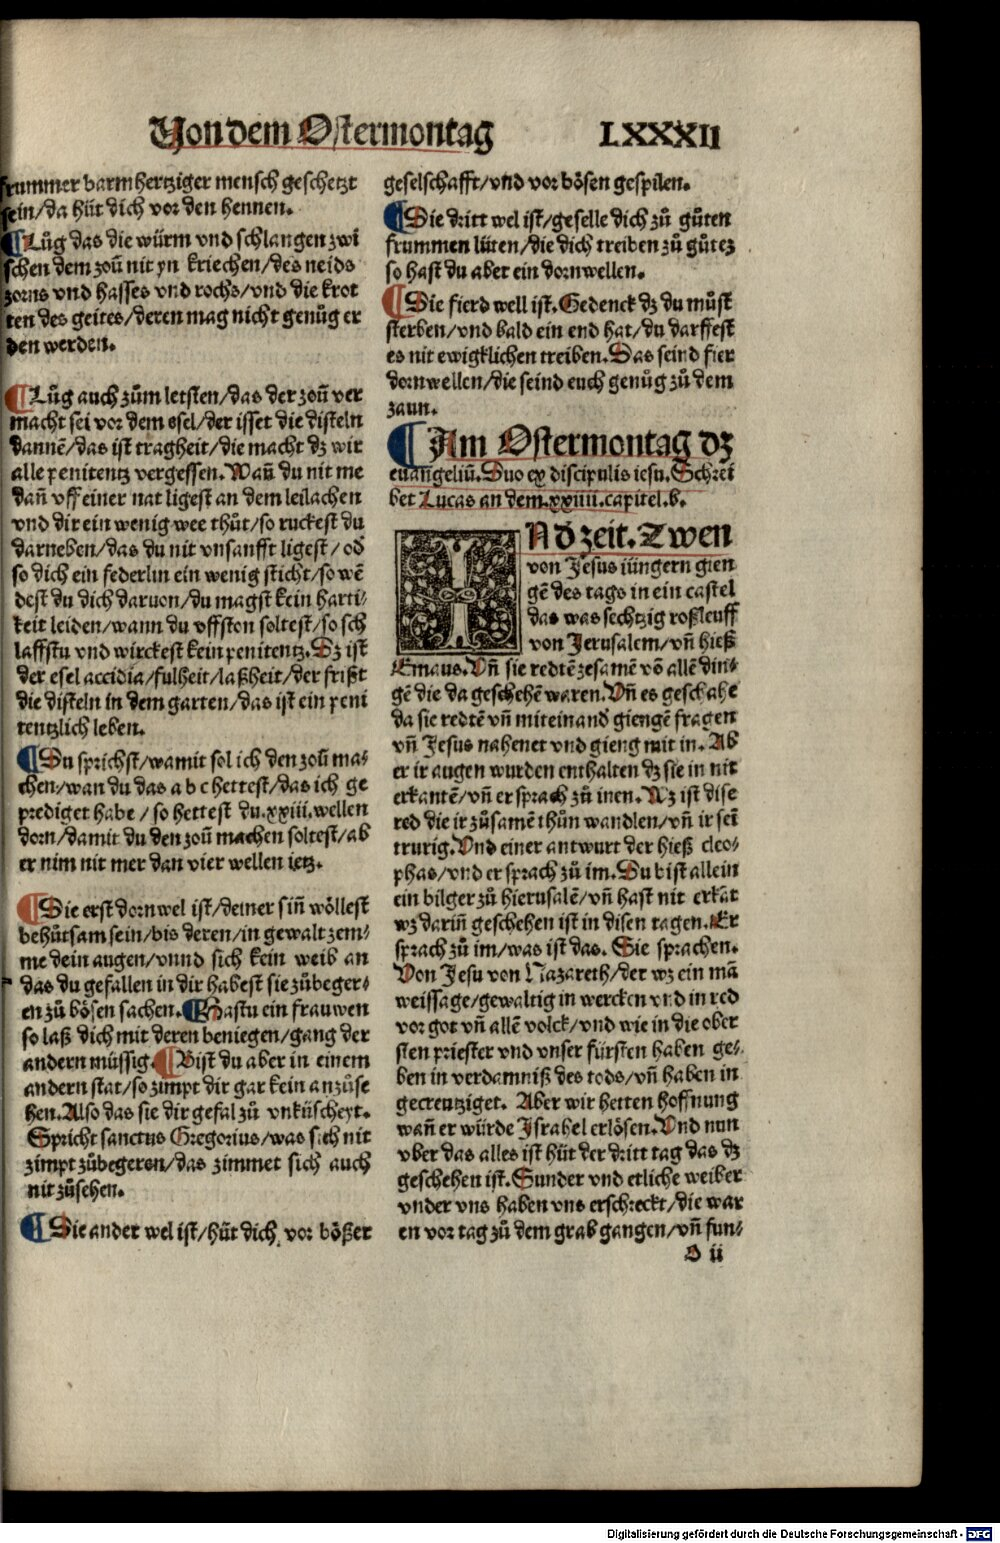 Von dem Ostermontag LXXXII
frummer barmhertziger mensch geschetzt
sein/da hüt dich vor den hennen.
¶ Lůg das die würm vnd schlangen zwi
schen dem zoũ nit yn kriechen/des neids
zorns vnd hasses vnd rochs/vnd die krot
ten des geites/deren mag nicht genůg er
den werden.
¶ Lůg auch zům letsten/das der zoũ ver
macht sei vor dem esel/der isset die disteln
dannẽ/das ist tragheit/die macht dz wir
alle penitentz vergessen. Wañ du nit me
dañ vff einer nat ligest an dem leilachen
vnd dir ein wenig wee thůt/so ruckest du
darneben/das du nit vnsanfft ligest/od̾
so dich ein federlin ein wenig sticht/so wẽ
dest du dich daruon/du magst kein harti⸗
keit leiden/wann du vffston soltest/so sch
laffstu vnd wirckest kein penitentz. Dz ist
der esel accidia/fulheit/laßheit/der frißt
die disteln in dem garten/das ist ein peni
tentzlich leben.
¶ Du sprichst/wamit sol ich den zoũ ma⸗
chen/wan du das a b c hettest/das ich ge
prediget habe/so hettest du.xxiii.wellen
dorn/damit du den zoũ machen soltest/ab
er nim nit mer dan vier wellen ietz.
¶ Die erst dornwel ist/deiner siñ wöllest
behůtsam sein/bis deren/in gewalt zem⸗
me dein augen/vnnd sich kein weib an
das du gefallen in dir habest sie zůbeger⸗
en zů bösen sachen. ¶ Hastu ein frauwen
so laß dich mit deren beniegen/gang der
andern müssig. ¶ Bist du aber in einem
andern stat/so zimpt dir gar kein anzůse
hen. Also das sie dir gefal zů vnküscheyt.
Spricht sanctus Gregorius/was sich nit
zimpt zůbegeren/das zimmet sich auch
nit zůsehen.
¶ Die ander wel ist/hüt dich vor bößer
geselschafft/vnd vor bösen gespilen.
¶ Die dritt wel ist/geselle dich zů gůten
frummen lüten/die dich treiben zů gůtez
so hast du aber ein dornwellen.
¶ Die fierd well ist. Gedenck dz du můst
sterben/vnd bald ein end hat/du darffest
es nit ewigklichen treiben. Das seind fier
dornwellen/die seind euch genůg zů dem
zaun.
¶ Am Ostermontag dz
euangeliũ. Duo ex discipulis iesu. Schrei
bet Lucas an dem.xxiiii.capitel.b.
Nd̾ zeit. Zwen
von Jesus iüngern gien
gẽ des tags in ein castel
das was sechtzig roßleuff
von Jerusalem/vñ hieß
Emaus. Vñ sie redtẽ zesamẽ võ allẽ din⸗
gẽ die da geschehẽ waren. Vñ es geschahe
da sie redtẽ vñ miteinand̾ giengẽ fragen
vñ Jesus nahenet vnd gieng mit in. Ab
er ir augen wurden enthalten dz sie in nit
erkantẽ/vñ er sprach zů inen. Wz ist dise
red die ir zůsamẽ thůn wandlen/vñ ir sei
trurig. Vnd einer antwurt der hieß cleo⸗
phas/vnd er sprach zů im. Du bist allein
ein bilger zů hierusalẽ/vñ hast nit erkãt
wz dariñ geschehen ist in disen tagen. Er
sprach zů im/was ist das. Sie sprachen.
Von Jesu von Nazareth/der wz ein mã
weissage/gewaltig in wercken vnd in red
vor got vñ allẽ volck/vnd wie in die ober
sten priester vnd vnser fürsten haben ge⸗
ben in verdamniß des tods/vñ haben in
gecreutziget. Aber wir hetten hoffnung
wañ er würde Israhel erlösen. Vnd nun
vber das alles ist hüt der dritt tag das dz
geschehen ist. Sunder vnd etliche weiber
vnder vns haben vns erschreckt/die war
en vor tag zů dem grab gangen/vñ fun⸗
O ii
Digitalisierung gefördert durch die Deutsche Forschungsgemeinschaft - DFG